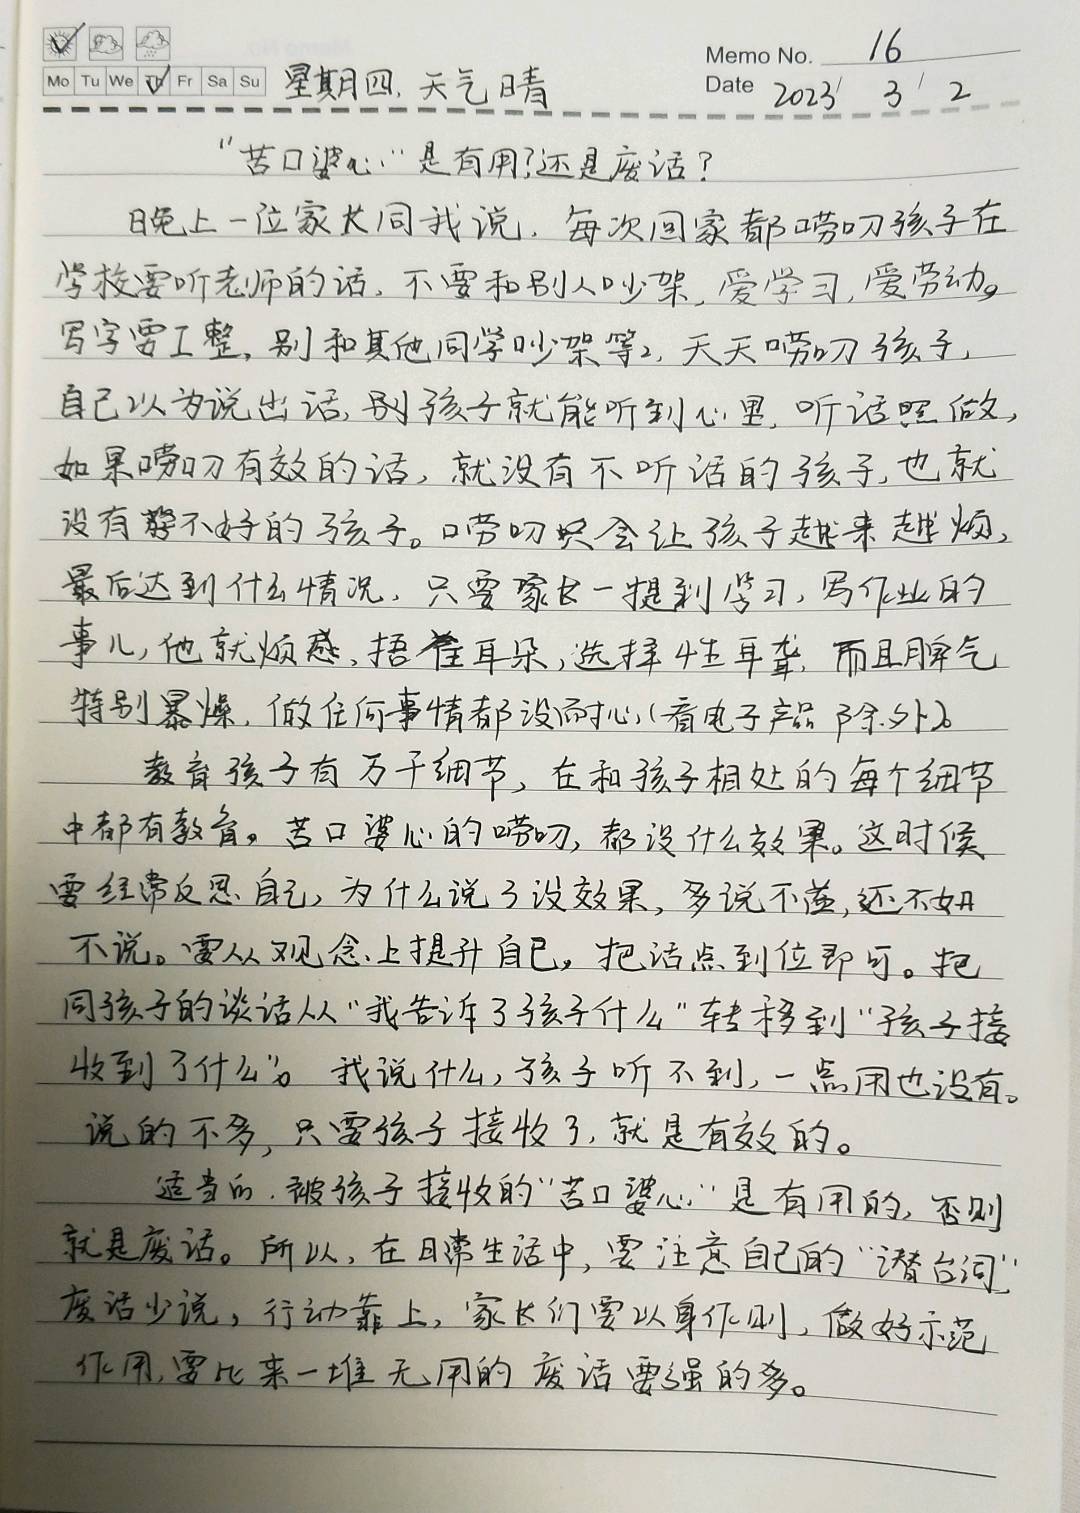 Memo No. 16
Mo Tu We Th Fr Sa Su 星期四, 天气晴
Date 2023/ 3 / 2
"苦口婆心"是有用?还是废话?
晚上一位家长同我说, 每次回家都唠叨孩子在
学校要听老师的话, 不要和别人吵架, 爱学习, 爱劳动。
写字要工整, 别和其他同学吵架等, 天天唠叨孩子,
自己以为说出话, 别孩子就能听到心里, 听话照做,
如果唠叨有效的话, 就没有不听话的孩子, 也就
没有学不好的孩子。唠叨只会让孩子越来越烦,
最后达到什么情况, 只要家长一提到学习, 写作业的
事儿, 他就烦感, 捂住耳朵, 选择性耳聋, 而且脾气
特别暴燥, 做任何事情都没耐心(看电子产品除外)。
教育孩子有万千细节, 在和孩子相处的每个细节
中都有教育。苦口婆心的唠叨, 都没什么效果。这时候
要经常反思自己, 为什么说了没效果, 多说不益, 还不如
不说。要从观念上提升自己, 把话点到位即可。把
同孩子的谈话从"我告诉了孩子什么"转移到"孩子接
收到了什么"。我说什么, 孩子听不到, 一点用也没有。
说的不多, 只要孩子接收了, 就是有效的。
适当的, 被孩子接收的"苦口婆心"是有用的, 否则
就是废话。所以, 在日常生活中, 要注意自己的"潜台词",
废话少说, 行动靠上, 家长们要以身作则, 做好示范
作用, 要比来一堆无用的废话要强的多。